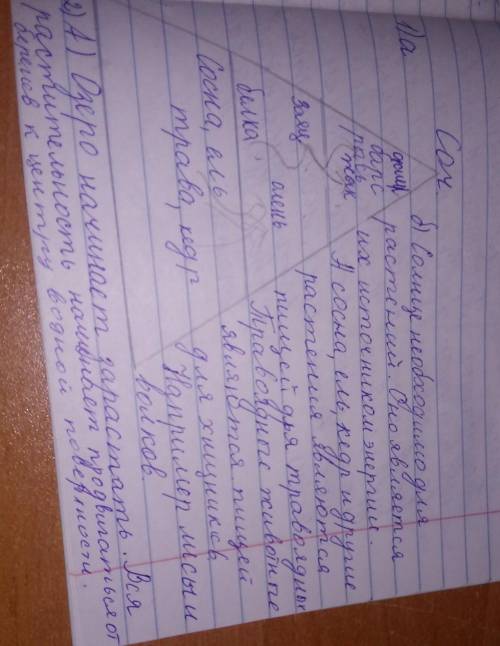 Соч.
1)а.
б) Солнце необходимо для
растений. Оно является
их источником энергии.
А сосна, ель, кедр и другие
растения являются
пищей для травоядных
Травоядные животные
являются пищей
для хищников
Например лисы и
волков.
заяц
олень
белка
Сосна, ель
трава, кедр
2) А) Озеро начинает зарастать. Вся
растительность начинает продвигаться от
берегов к центру водной поверхности.